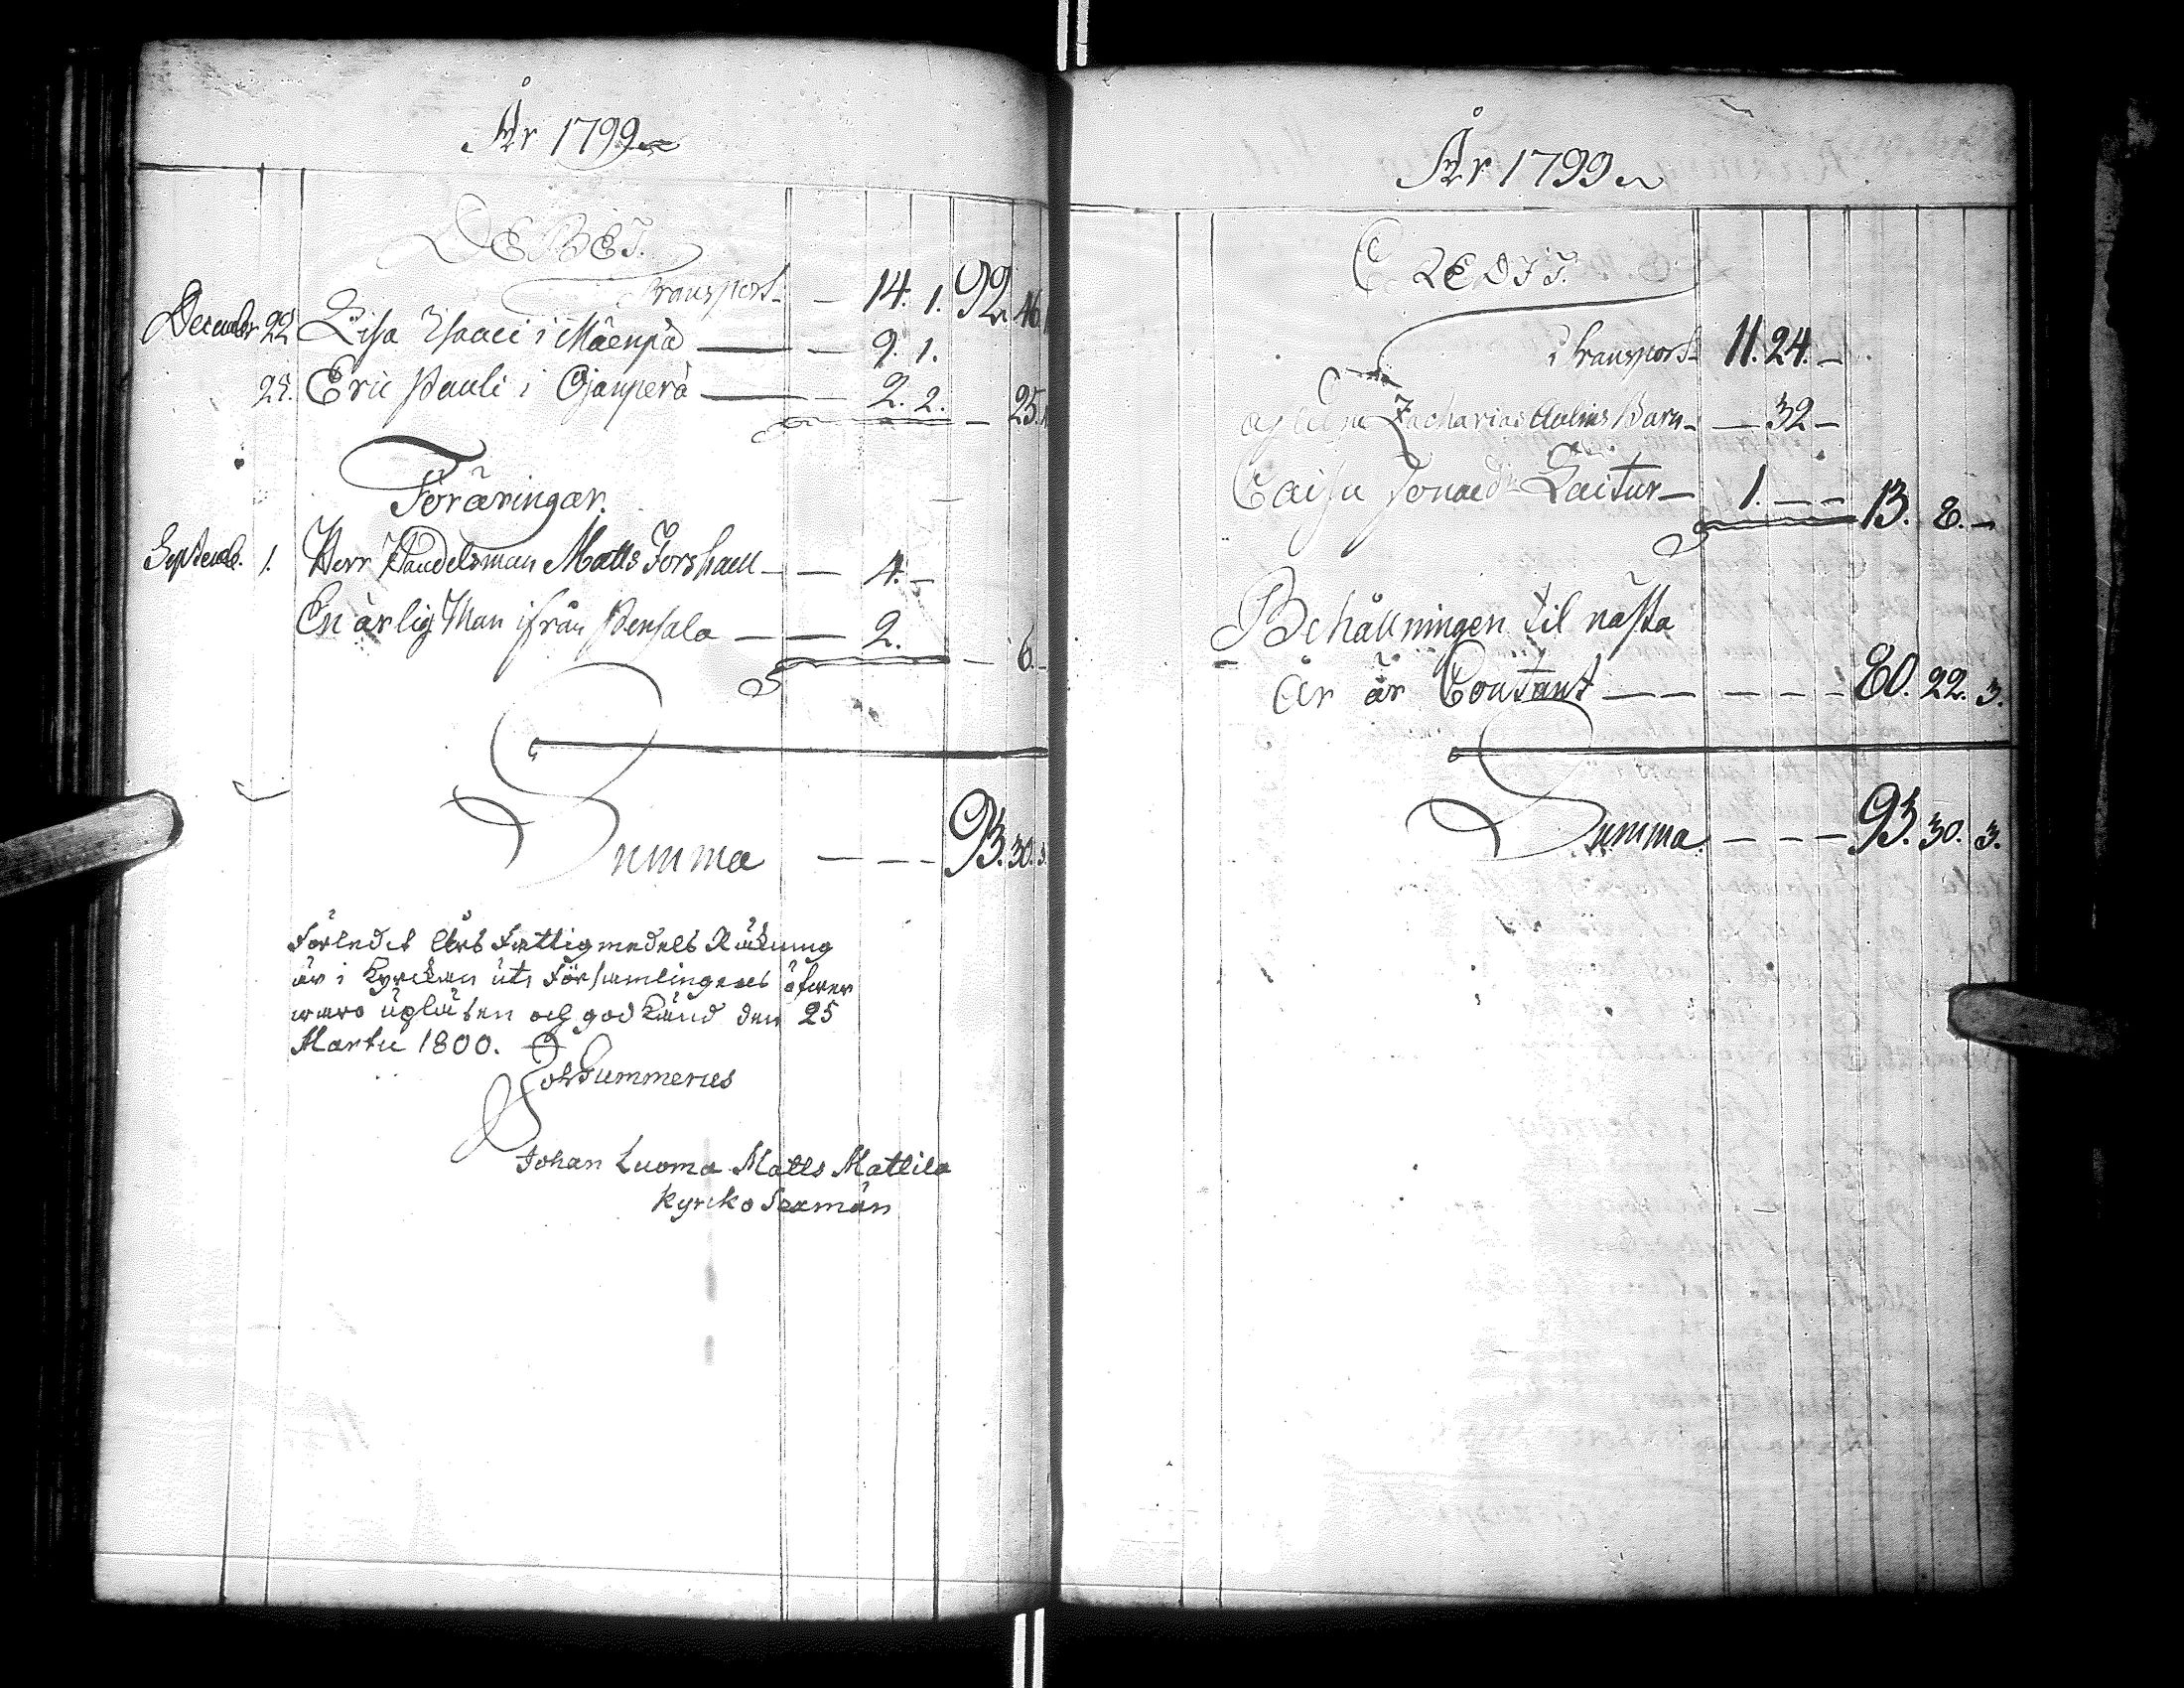 År 1799
DEBET.
Transport — 14. 1. 92. 46.
December 22 Lisa Isaaci i Mäenpä — 9. 1.
25. Eric Pauli i Ojanperä — 2. 2. — 25.
Föräringar.
Septemb. 1. Herr Handelsman Matts Forshaell — 4. —
En ärlig Man ifrån Pensala — 2. — 6. —
Summa — — — 93. 30. 3.
Förledit Års Fattigmedels Räkning
är i Kyrckan uti Församlingenes öfwer
waro upläsen och godkänd den 25
Martii 1800.
Joh Gummerus
Johan Luoma Matts Mattila
Kyrko Sexmän
År 1799
CREDIT.
Transport 11. 24. —
Zacharias Aulins Barn — 32 —
Caisa Jonaedr Laitur — 1. — — 13. 8. —
Behållningen til nästa
År är Contant — — — — — 80. 22. 3.
Summa — — — 93. 30. 3.